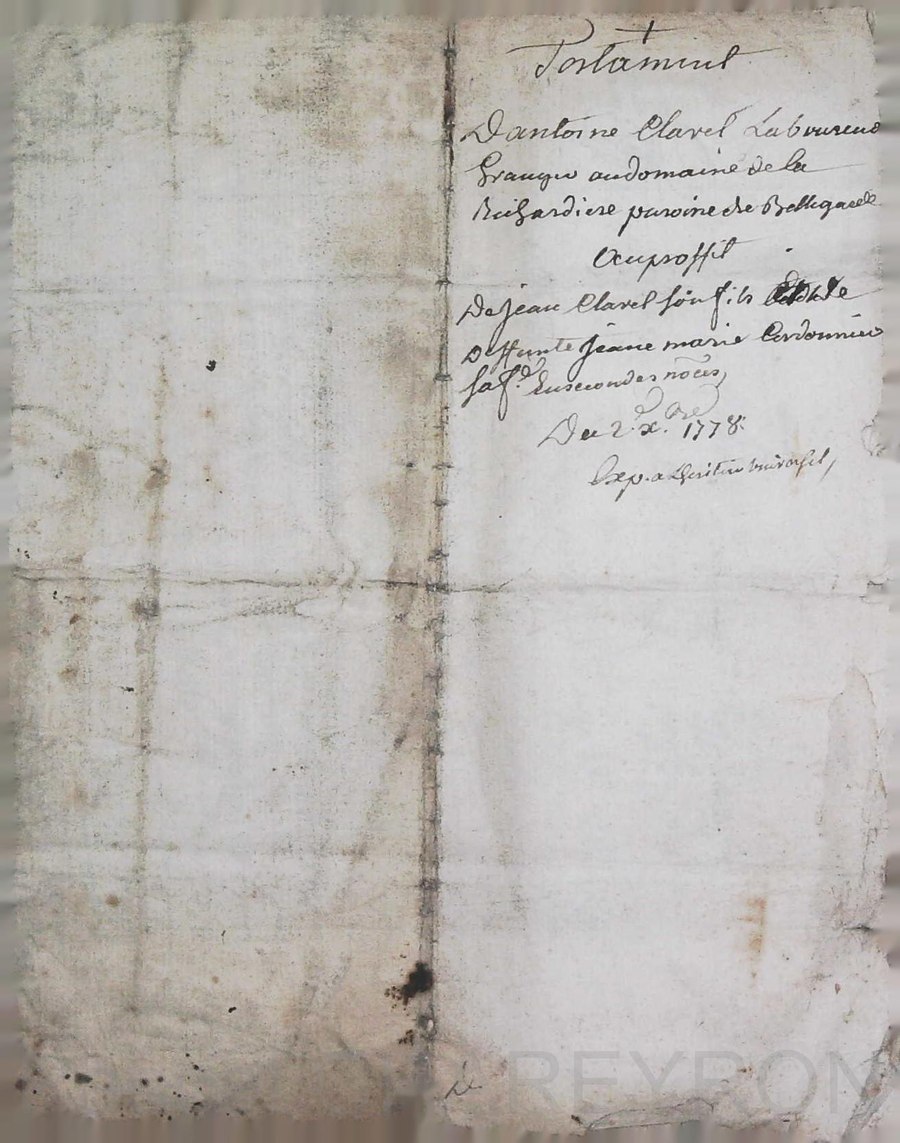 Testament
D'antoine Clavel Laboureur
Granger au domaine de la
Richardiere paroisse de Bellegarde
Au proffit
De jean Clavel son fils & de
Deffunte jeane marie Cordonnier
Sa f.e en secondes nôces
Du 2.e x.bre 1778.
Exp. a heritier universel
REYRON